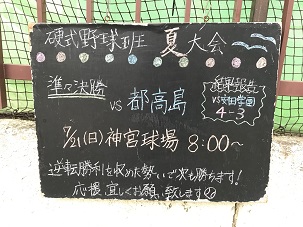 硬式野球班 夏大会
準々決勝
vs 都高島
結果報告
vs 安田学園
4-3
7/21(日) 神宮球場 8:00〜
逆転勝利を収めた勢いで次も勝ちます!
応援宜しくお願い致します